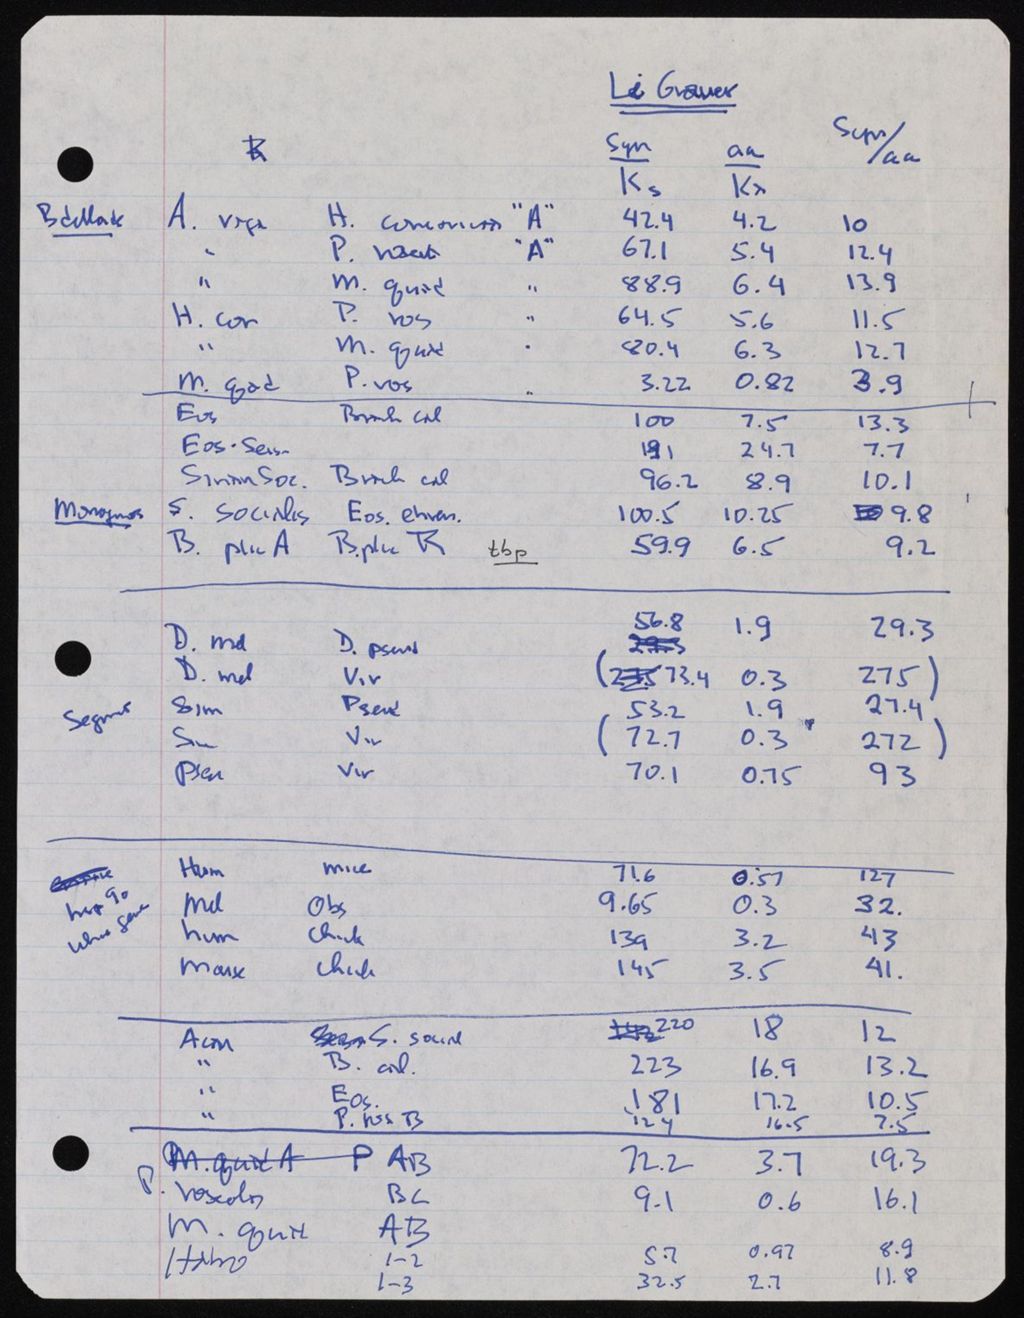 Syn aa Syn/aa
Ks Ka
Bdelloids A. vaga H. "A" 42.4 4.2 10
" P. "A" 67.1 5.4 12.4
" M. quad " 88.9 6.4 13.9
H. con P. ros " 64.5 5.6 11.5
" M. quad " 80.4 6.3 12.7
M. quad P. ros " 3.22 0.82 3.9
Eos Brach cal 100 7.5 13.3
Eos. 191 24.7 7.7
Soc. Brach cal 96.2 8.9 10.1
Monogonos S. socialis Eos. ehren. 100.5 10.25 9.8
B. plic A B. plic R tbp 59.9 6.5 9.2
56.8
D. mel D. pseud 1.9 29.3
D. mel Vir (73.4 0.3 275)
Segmus Sim Pseud 53.2 1.9 27.4
Sim Vir (72.7 0.3 272)
Pseu Vir 70.1 0.75 93
Hum mice 71.6 0.57 127
hsp 90 Mel Obs 9.65 0.3 32.
whole gene hum chick 139 3.2 43
Mouse chick 145 3.5 41.
Acan S. social 220 18 12
" B. cal. 223 16.9 13.2
" Eos. 181 17.2 10.5
" P. ros B 124 16.5 7.5
M. quad A P AB 72.2 3.7 19.3
P. roseola BC 9.1 0.6 16.1
M. quad AB
1-2 5.7 0.97 8.9
1-3 32.5 2.7 11.8